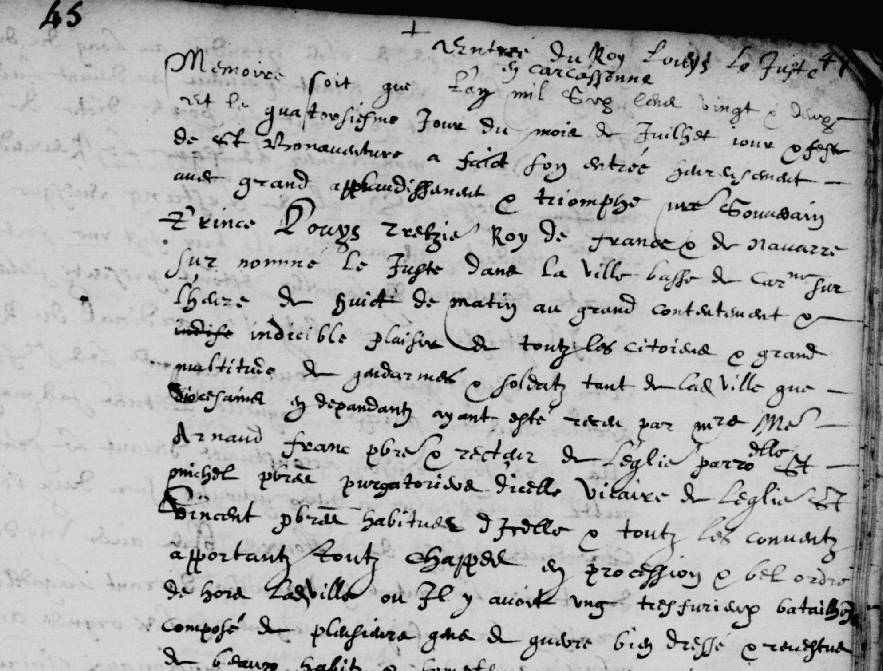 45
+
Entree du Roy Louys le Juste 47
en carcassonne
Memoire soit que l'an mil six cens vingt & deux
et le quatorsiesme Jour du mois de Juilhet iour & feste
de St Bonaventure a faict son entrée heureusement
avec grand applaudissement & triomphe nre Souverain
Prince Louys tretzie Roy de france & de Navarre
sur nommé le Juste dans la ville basse de Carne sur
lheure de huict de matin au grand contentement &
indicible plaisir de toutz les citoiens & grand
multitude de gendarmes & soldatz tant de lad ville que
diocesains en depandantz ayant esté receu par mre Me
Arnaud franc pbre & recteur de Leglie parrodlle St
michel pbres purgatoriens dicelle vicaire de Leglie St
Vincent pbres habitues dIcelle & toutz les conventz
apportantz toutz chappes en procession & bel ordre
de hors Ladville ou Il y avoit ung tresfurieux batailhon
composé de plusieurs gens de guerre bien dressé & revestus
de beaux habitz &